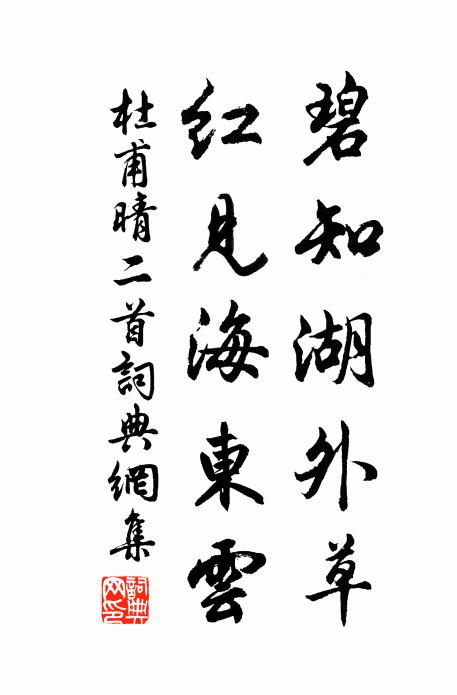 碧知湖外草
紅見海東雲
杜甫晴二首詞典網集
詞典網印